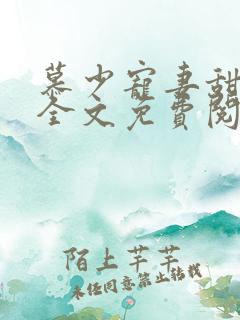 慕少寵妻甜
全文免費閱
陌上芊芊
未经同意禁止转载